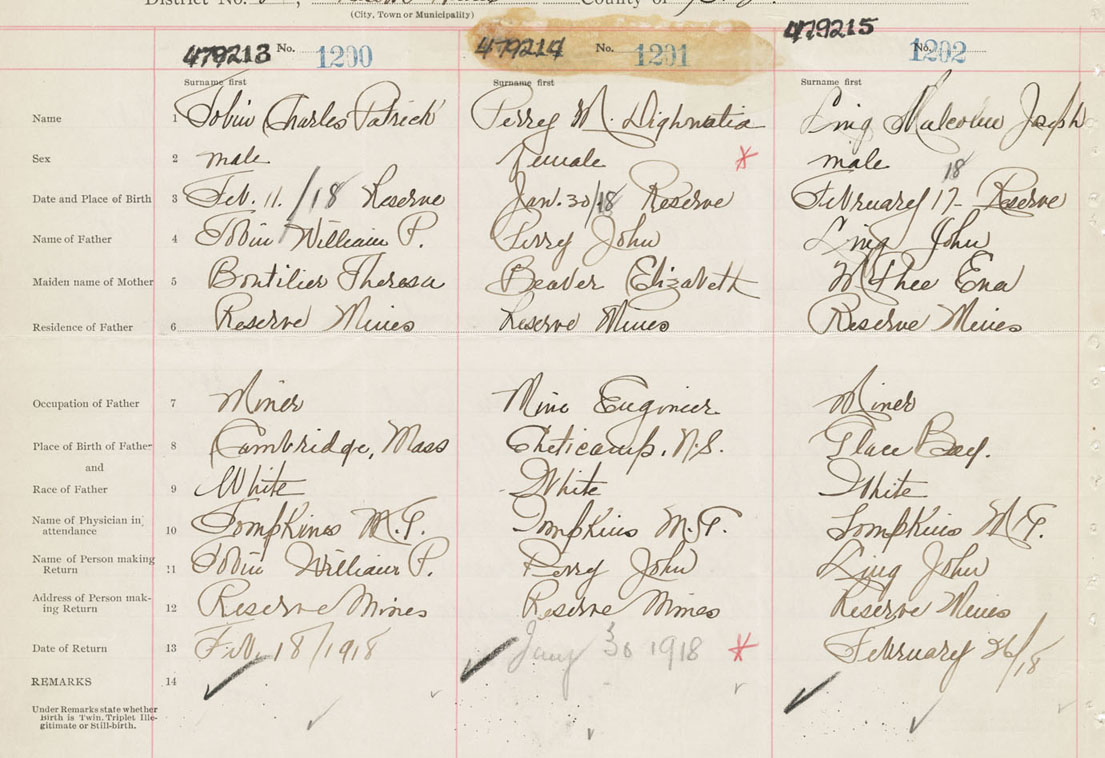 District No.
County of
(City, Town or Municipality)
479213 No. 1200 479214 No. 1201 479215 No. 1202
Surname first Surname first Surname first
Name 1 Tobin Charles Patrick Perrey M. Ling Malcolm Joseph
Sex 2 male Female * male
Date and Place of Birth 3 Feb. 11. /18 Reserve Jan. 30/18 Reserve February 17- 18 Reserve
Name of Father 4 Tobin William P. Perrey John Ling John
Maiden name of Mother 5 Bontilier Theresa Beaver Elizabeth McPhee Ena
Residence of Father 6 Reserve Mines Reserve Mines Reserve Mines
Occupation of Father 7 Miner Mine Enginier Miner
Place of Birth of Father 8 Cambridge, Mass Cheticamp, N.S. Glace Bay.
and
Race of Father 9 White White White
Name of Physician in attendance 10 Tompkins M.T. Tompkins M.T. Tompkins M.T.
Name of Person making Return 11 Tobin William P. Perry John Ling John
Address of Person making Return 12 Reserve Mines Reserve Mines Reserve Mines
Date of Return 13 Feb. 18/1918 Jany 30 1918 * February 26/18
REMARKS 14
Under Remarks state whether
Birth is Twin, Triplet Ille-
gitimate or Still-birth.